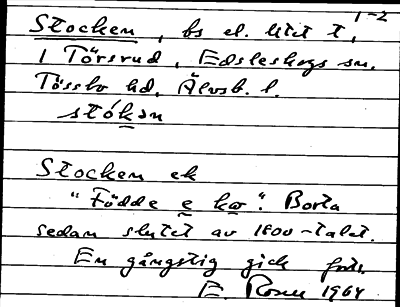 1-2
Stocken, bs el. litet t,
i Törsrud, Edsleskogs sn.
Tössbo hd, Älvsb. l.
stókən
Stocken ek
"Födde e ko". Borta
sedan slutet av 1800-talet.
En gångstig gick förbi.
E. Rosen 1964